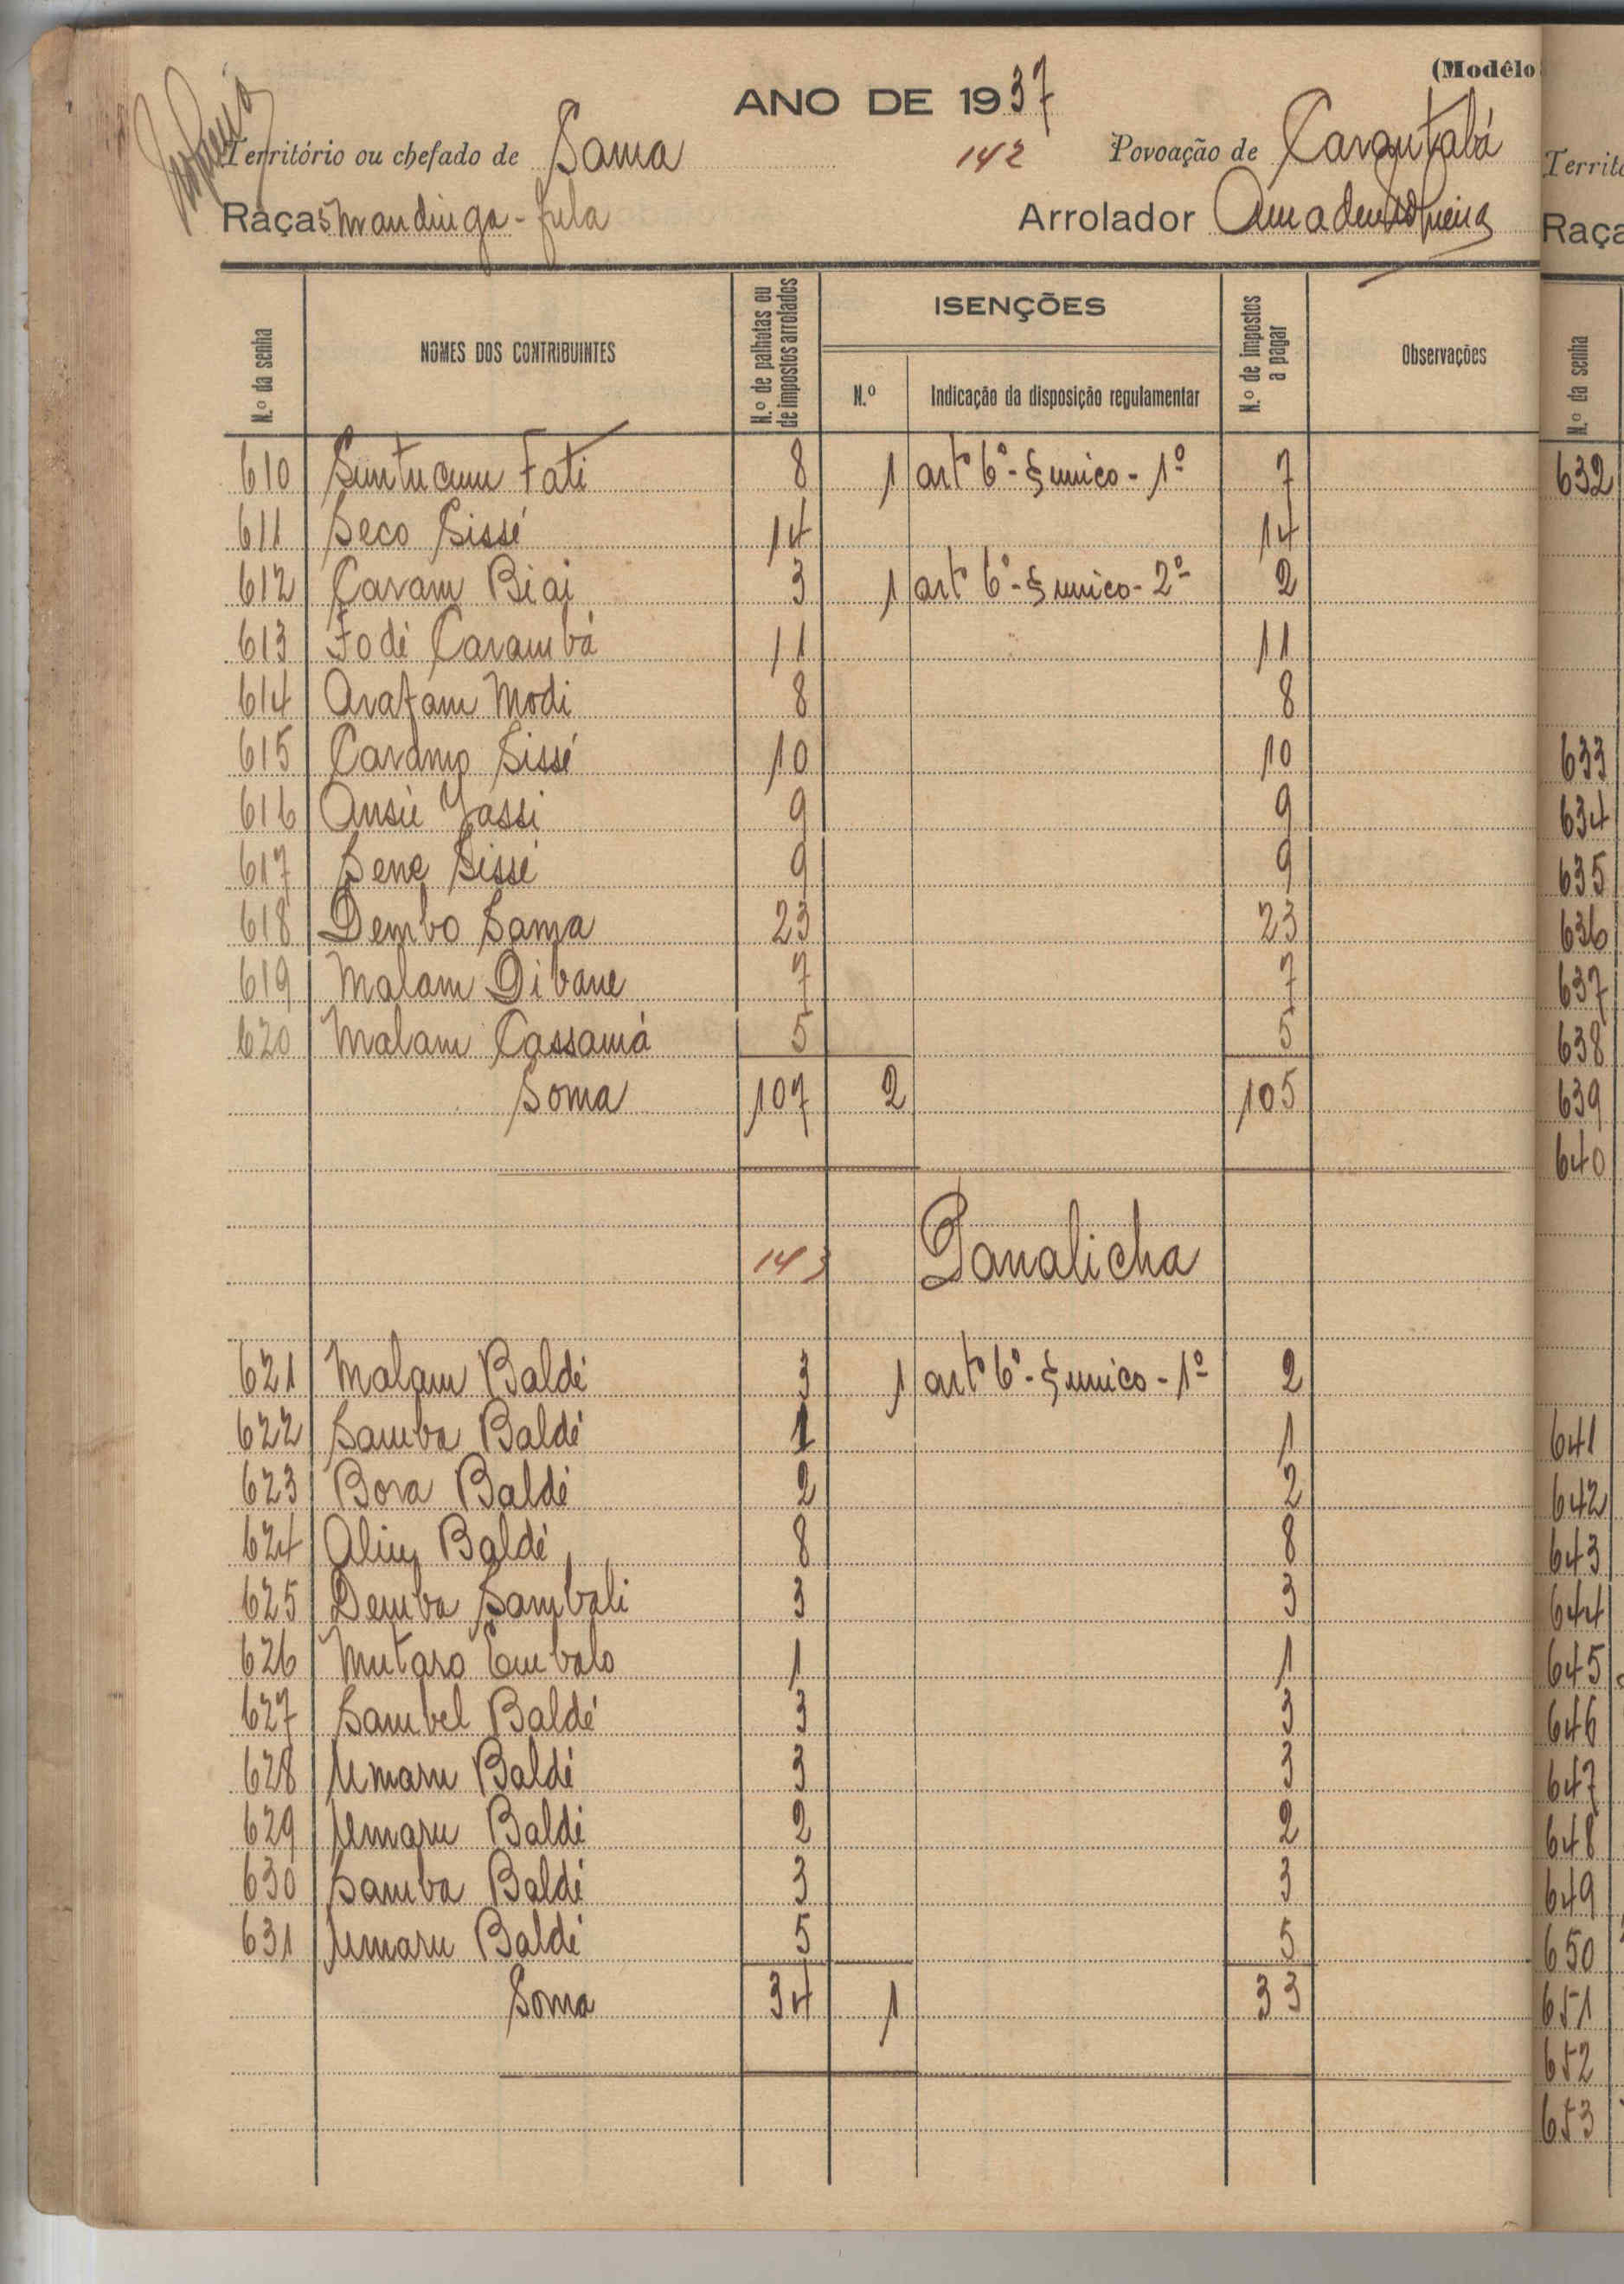 (Modêlo
ANO DE 1937
Território ou chefado de Sama 142 Povoação de Carantabá
Raças mandinga - fula Arrolador
N.º da senha NOMES DOS CONTRIBUINTES N.º de palhotas ou de impostos arrolados ISENÇÕES N.º Indicação da disposição regulamentar N.º de impostos a pagar Observações
610 Suntucum Fati 8 1 artº 6º - § unico - 1º 7
611 Seco Sissé 14 14
612 Caram Biai 3 1 artº 6º - § unico - 2º 2
613 Fodé Carambá 11 11
614 Arafam Modi 8 8
615 Caramo Sissé 10 10
616 Ansú Jassi 9 9
617 Sene Sissé 9 9
618 Dembo Sama 23 23
619 Malam Dibane 7 7
620 Malam Cassamá 5 5
Soma 107 2 105
143 Panalicha
621 Malam Baldé 3 1 artº 6º - § unico - 1º 2
622 Samba Baldé 1 1
623 Bora Baldé 2 2
624 Aliu Baldé 8 8
625 Demba Sambali 3 3
626 Mutaro Embalo 1 1
627 Sambel Baldé 3 3
628 Umaru Baldé 3 3
629 Umaru Baldé 2 2
630 Samba Baldé 3 3
631 Umaru Baldé 5 5
Soma 34 1 33
Territó
Raça
N.º da senha
632
633
634
635
636
637
638
639
640
641
642
643
644
645
646
647
648
649
650
651
652
653